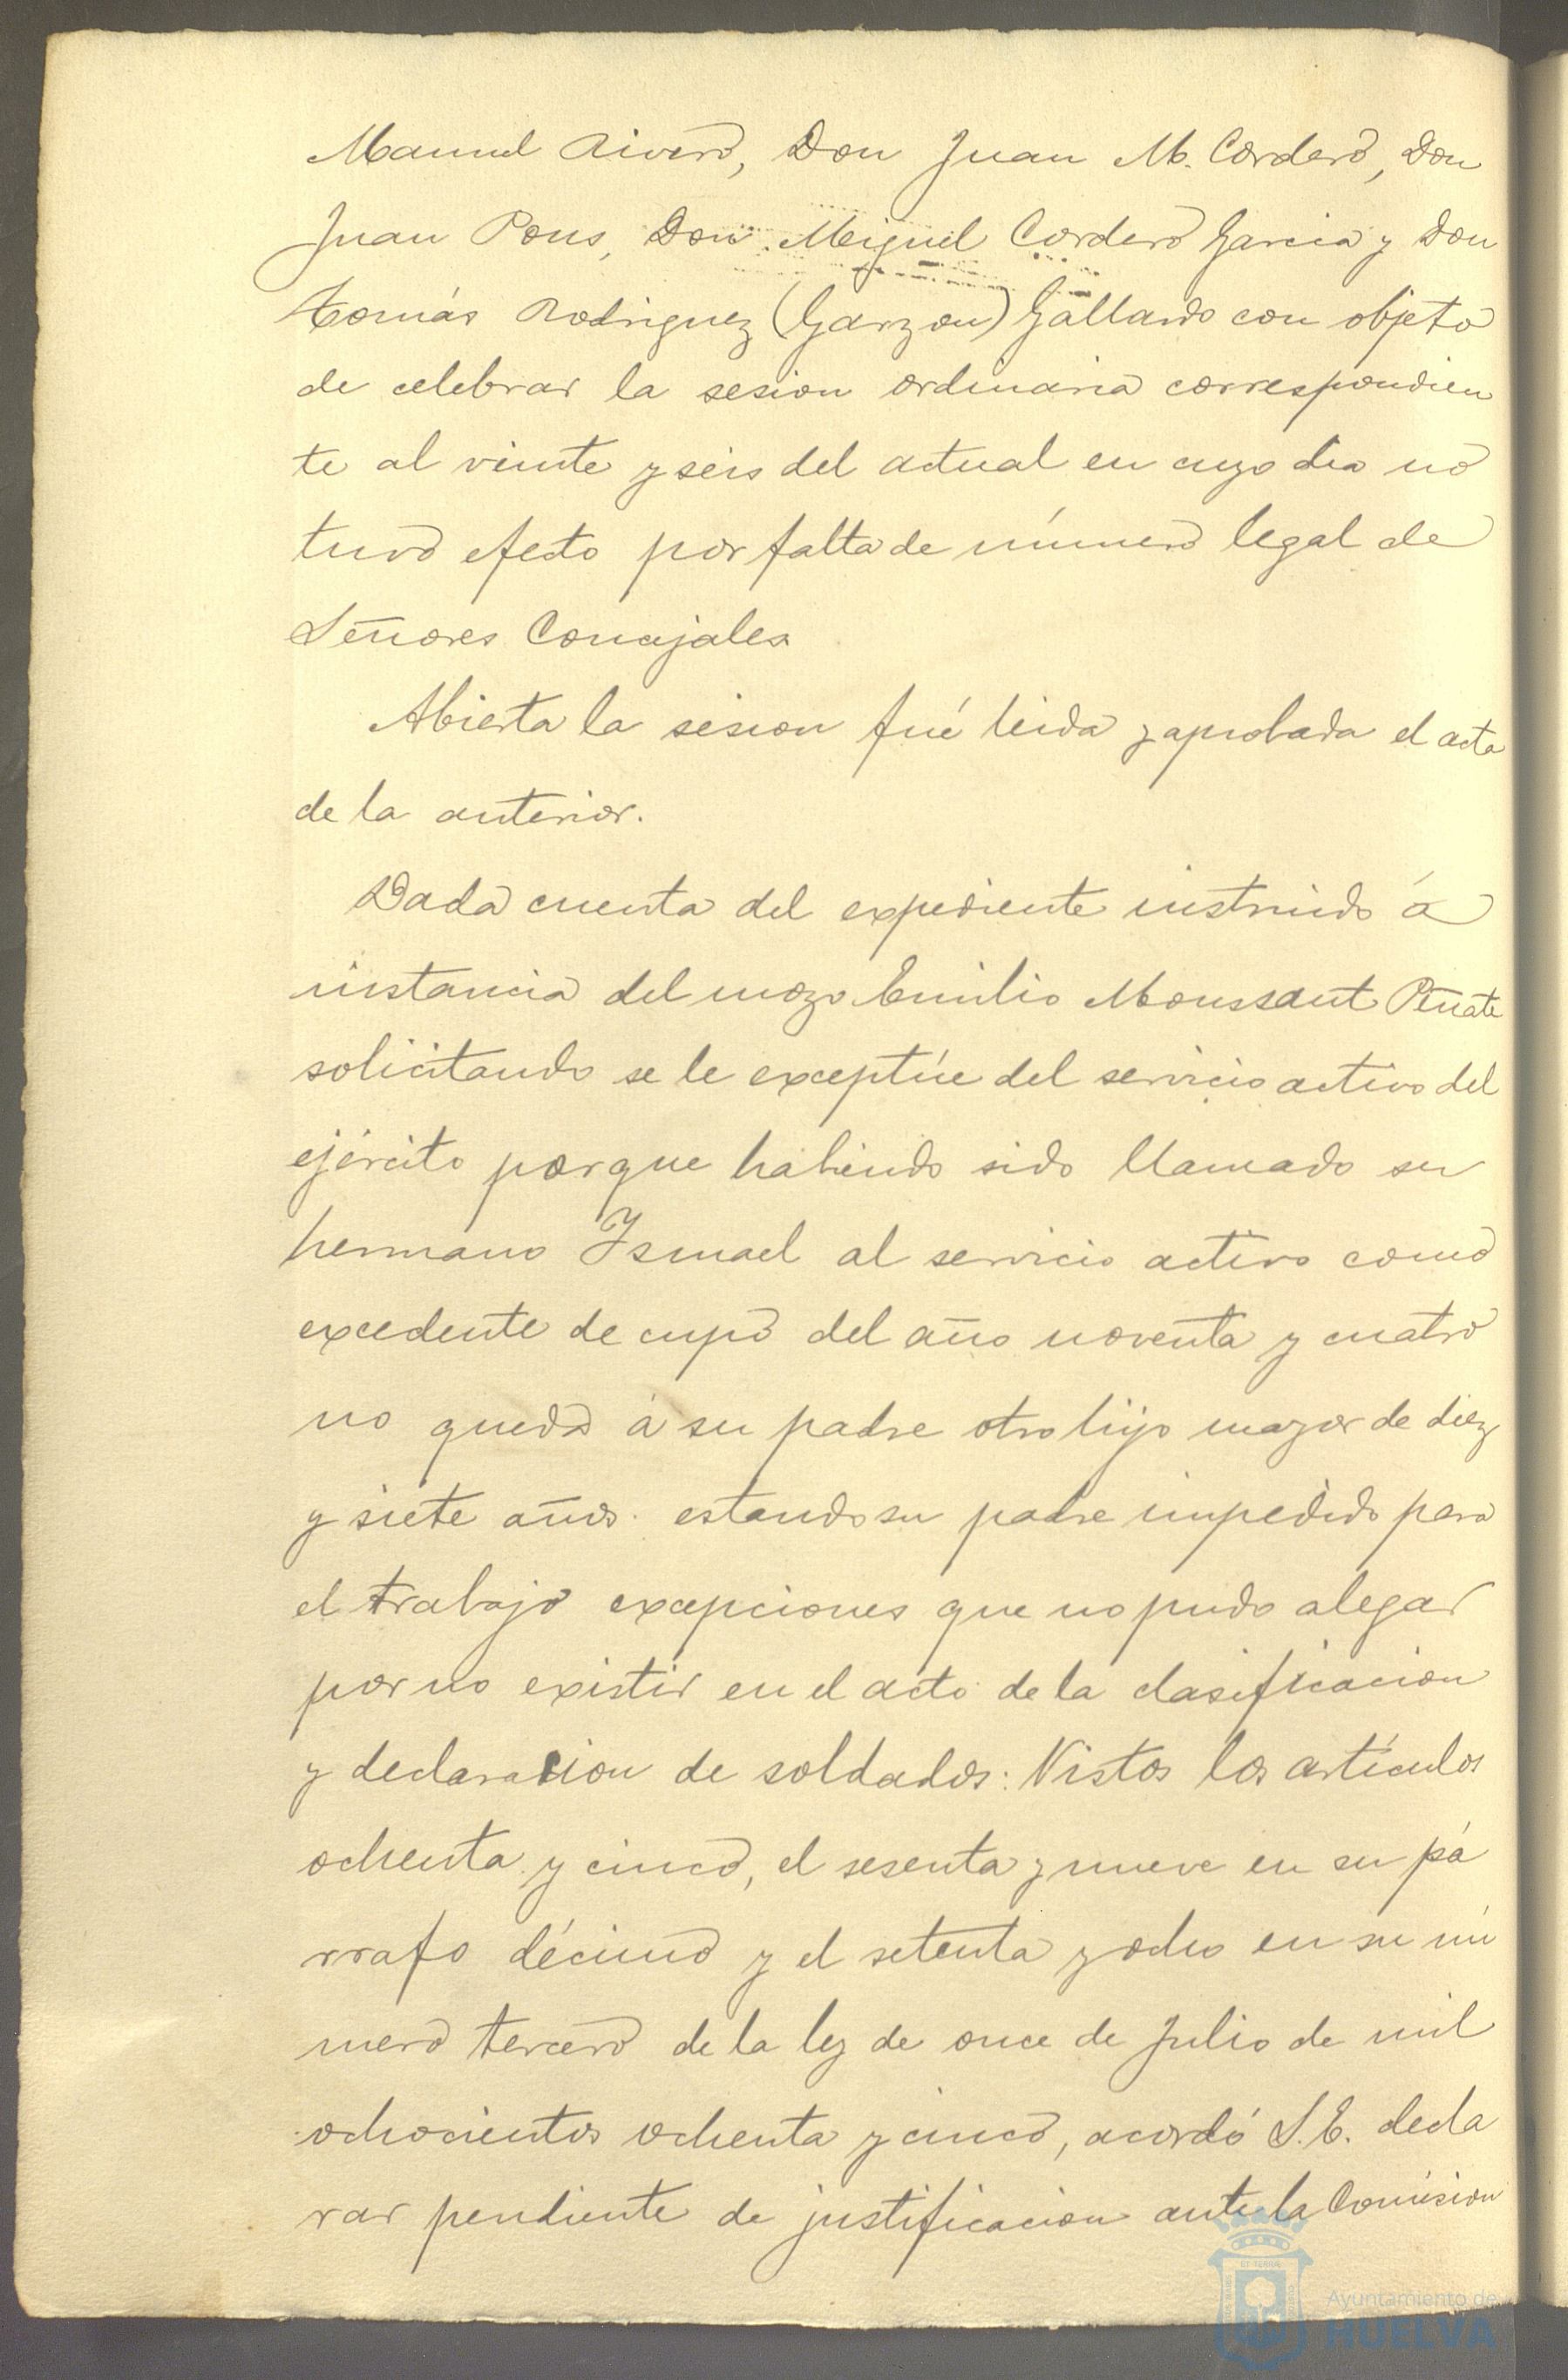 Manuel Rivero, Don Juan M. Cordero, Don
Juan Pons, Don Miguel Cordero Garcia y Don
Tomás Rodriguez (Garzon) Gallardo con objeto
de celebrar la sesion ordinaria correspondien
te al veinte y seis del actual en cuyo dia no
tuvo efecto por falta de número legal de
Señores Concejales
Abierta la sesion fué leida y aprobada el acta
de la anterior.
Dada cuenta del expediente instruido á
instancia del mozo Emilio Moussaut Peñate
solicitando se le exceptúe del servicio activo del
ejército porque habiendo sido llamado su
hermano Ismael al servicio activo como
excedente de cupo del año noventa y cuatro
no queda á su padre otro hijo mayor de diez
y siete años. estando su padre impedido para
el trabajo excepciones que no pudo alegar
por no existir en el acto de la clasificacion
y declaracion de soldados: Vistos los artículos
ochenta y cinco, el sesenta y nueve en su pá
rrafo décimo y el setenta y ocho en su nú
mero tercero de la ley de once de Julio de mil
ochocientos ochenta y cinco, acordó S.E. decla
rar pendiente de justificacion ante la Comision
Ayuntamiento de
HUELVA